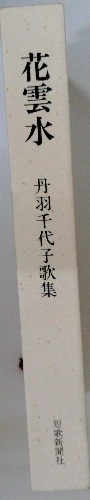 花雲水
丹羽千代子歌集
短歌新聞社